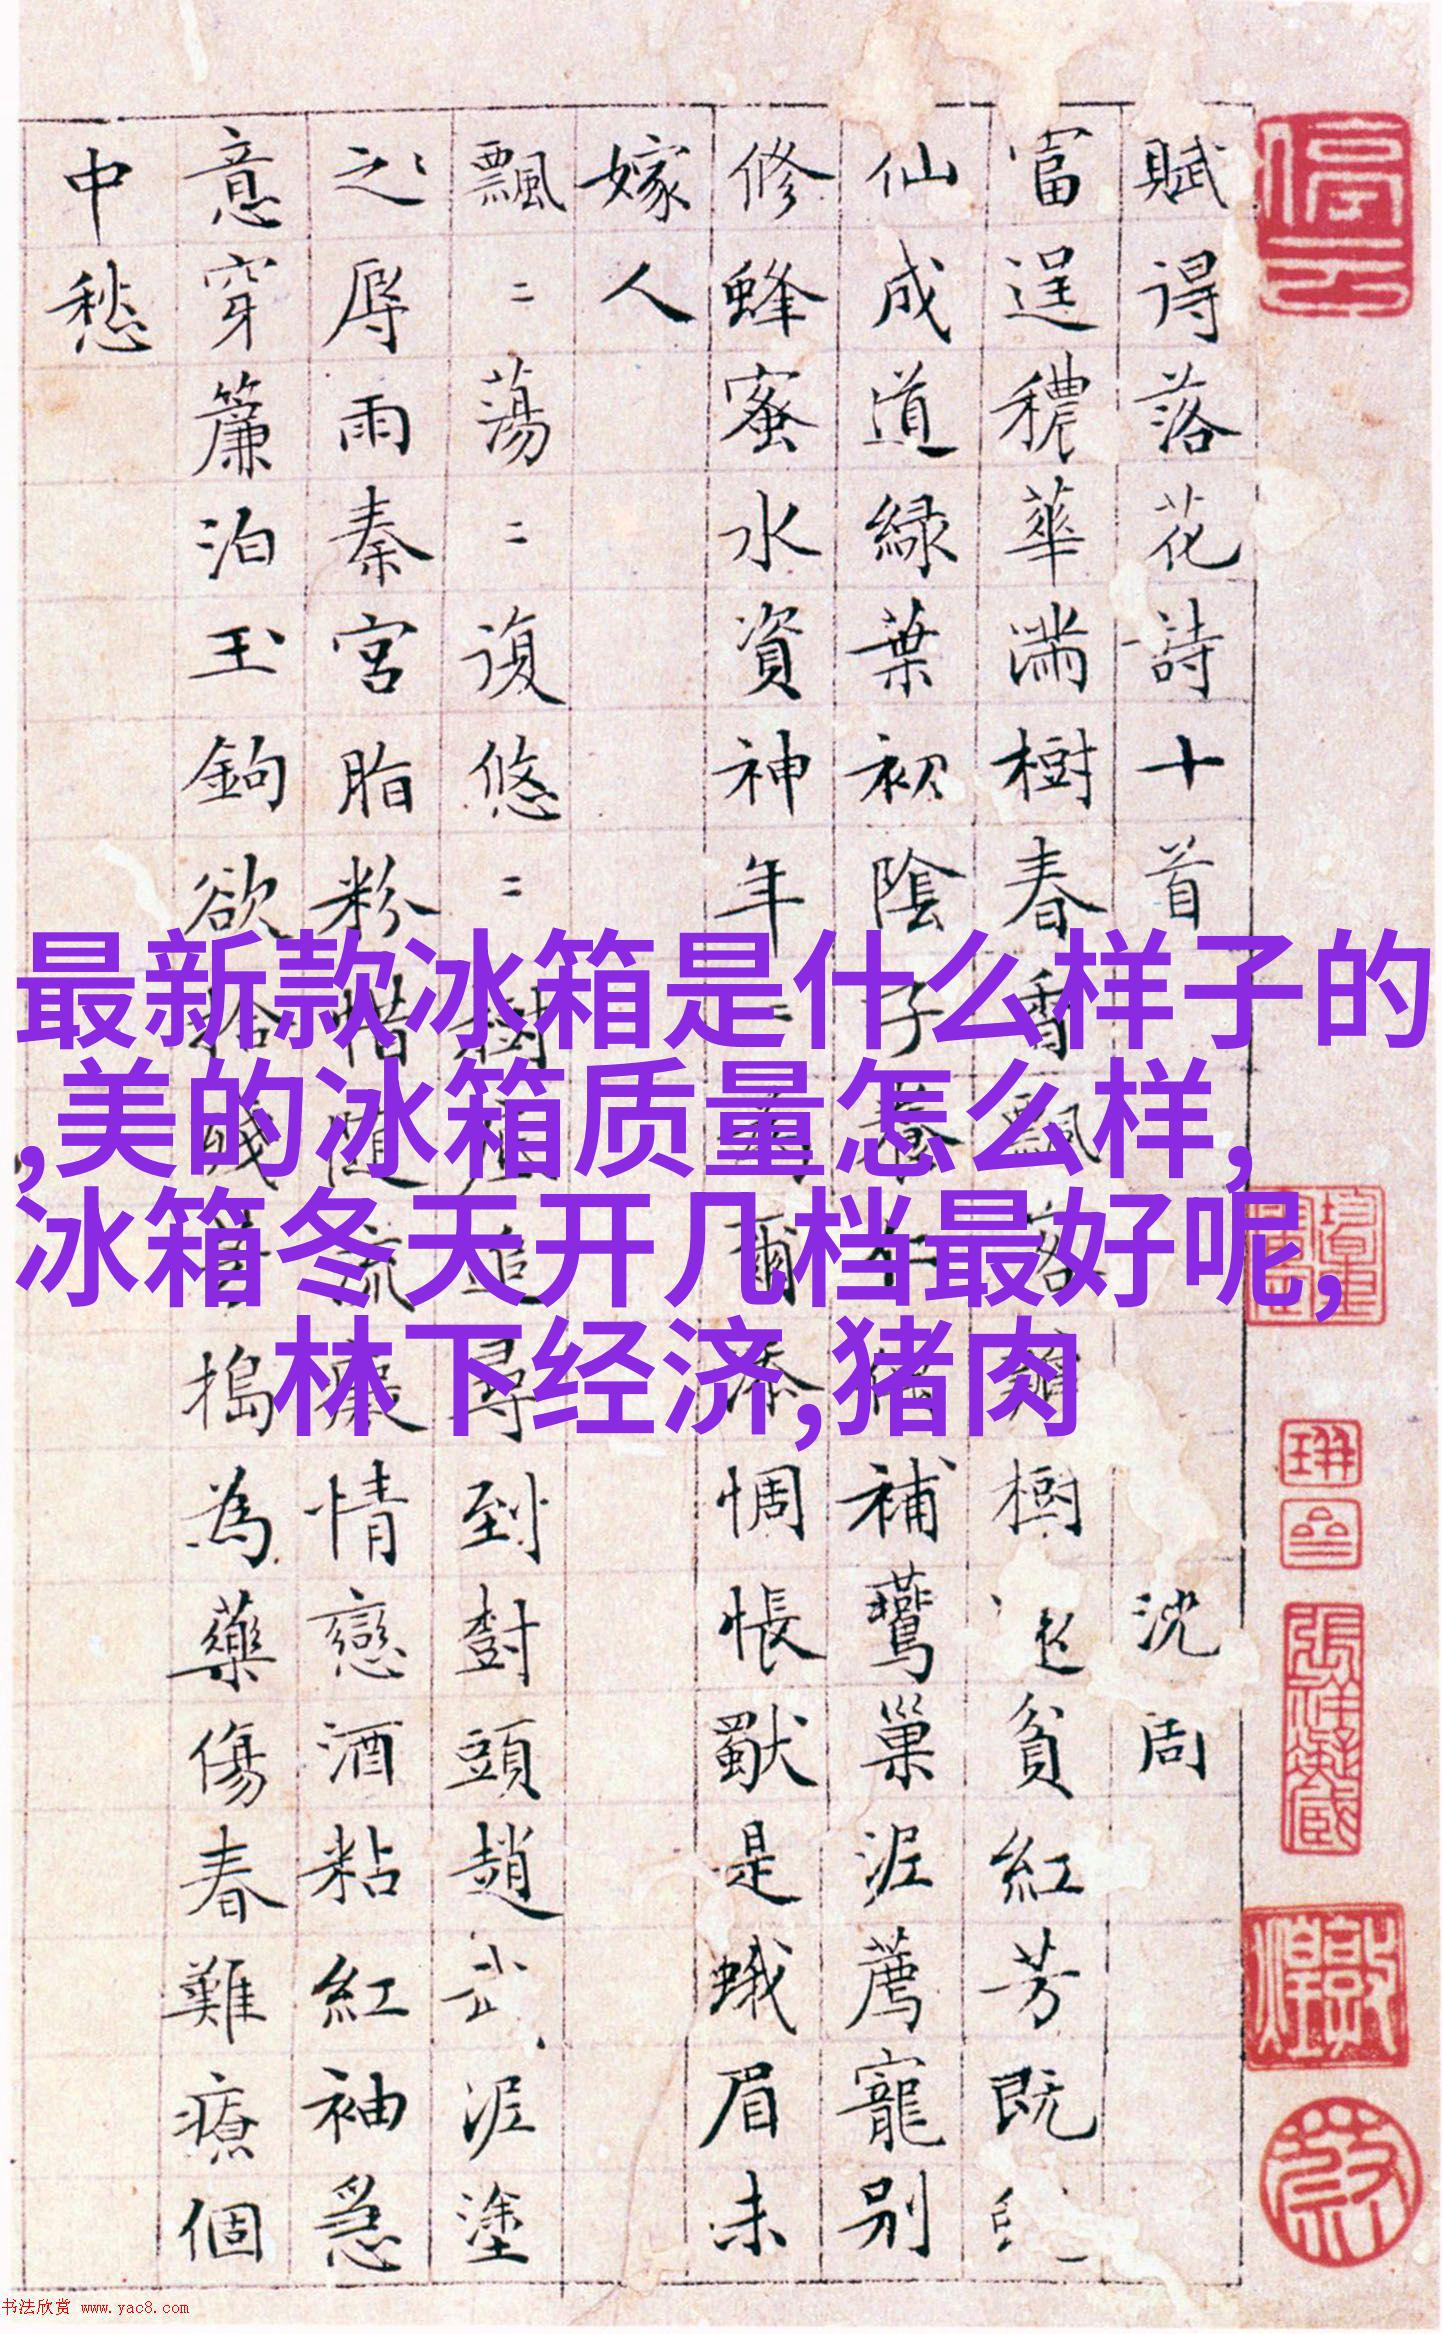 賦得落花詩十首 沈周
富逞穠華滿樹春香飄落樹貧紅芳既
仙成道綠葉初陰子養仁補鶯巢泥薦寵別
修蜂蜜水資神年=為爾添惆悵猒是蛾眉未
嫁人
飄=蕩=復悠=樹底追尋到樹頭趙武泥塗
之辱雨秦宮脂粉惜隨流癡情戀酒粘紅袖急
意穿簾泊玉鉤欲拾殘芳搗為藥傷春難療個
中愁
最新款冰箱是什么样子的
,美的冰箱质量怎么样,
冰箱冬天开几档最好呢,
林下经济,猪肉
书法欣赏 www.yac8.com